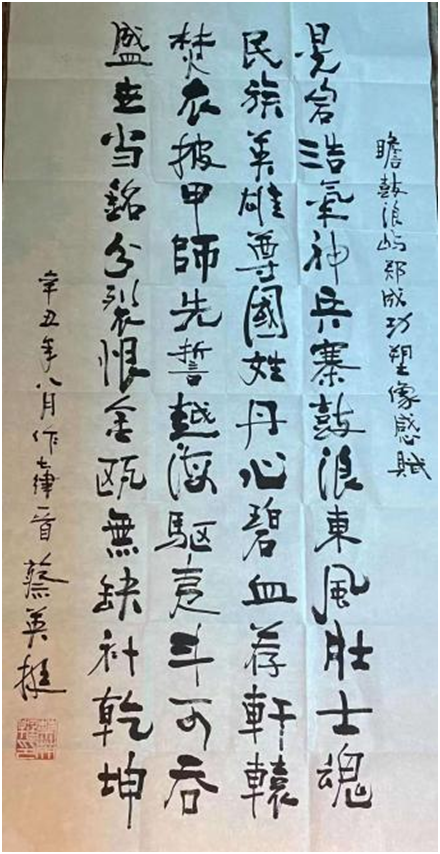 瞻鼓浪屿郑成功塑像感赋
晃岩浩氣神兵寨鼓浪東風壯士魂
民族英雄尊國姓丹心碧血荐軒轅
焚衣披甲師先誓越海驱夷斗可吞
盛世当銘分裂恨金瓯無缺补乾坤
辛丑年八月作七律一首蔡英挺